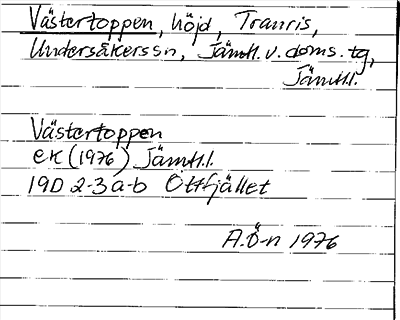 Västertoppen, höjd, Tranris,
Undersåkerssn, Jämtl. v. doms. tg,
Jämtl.l.
Västertoppen
ek (1976) Jämtl.l.
19D 2-3 a-b Ottfjället
A.Ö-n 1976